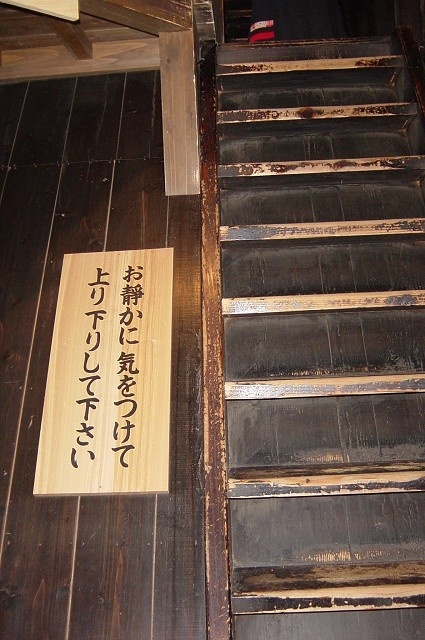 お静かに気をつけて
上り下りして下さい